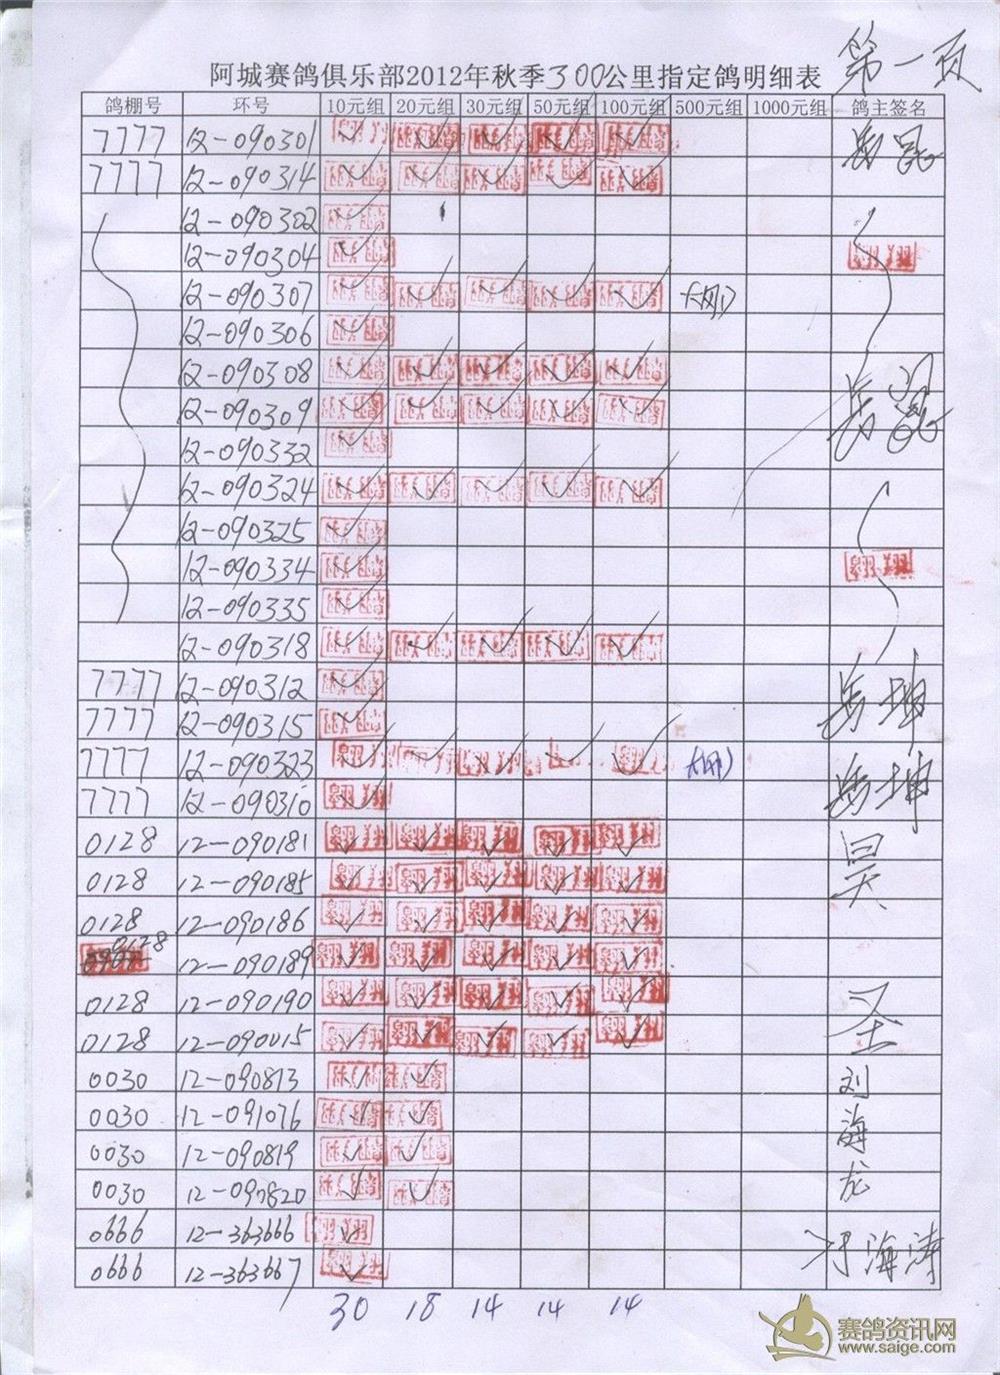 第一页
阿城赛鸽俱乐部2012年秋季300公里指定鸽明细表
鸽棚号 环号 10元组 20元组 30元组 50元组 100元组 500元组 1000元组 鸽主签名
7777 12-090301 ✓ ✓ ✓ ✓ ✓
7777 12-090314 ✓ ✓ ✓ ✓ ✓
12-090302 ✓
12-090304 ✓
12-090307 ✓ ✓ ✓ ✓ ✓
12-090306 ✓
12-090308 ✓ ✓ ✓ ✓ ✓
12-090309 ✓ ✓ ✓ ✓ ✓
12-090332 ✓
12-090324 ✓ ✓ ✓ ✓ ✓
12-090325 ✓
12-090334 ✓
12-090335 ✓
12-090318 ✓ ✓ ✓ ✓ ✓
7777 12-090312 ✓
7777 12-090315 ✓ 岳坤
7777 12-090323 ✓ ✓ ✓ ✓ ✓
7777 12-090310 ✓ 岳坤
0128 12-090181 ✓ ✓ ✓ ✓ ✓
0128 12-090185 ✓ ✓ ✓ ✓ ✓ 昊
0128 12-090186 ✓ ✓ ✓ ✓ ✓
0128 12-090189 ✓ ✓ ✓ ✓ ✓
0128 12-090190 ✓ ✓ ✓ ✓ ✓
0128 12-090015 ✓ ✓ ✓ ✓ ✓ 圣
0030 12-090813 ✓ ✓ 刘
0030 12-091076 ✓ ✓ 海
0030 12-090819 ✓ ✓
0030 12-090820 ✓ ✓ 龙
0666 12-363666 ✓
0666 12-363667 ✓ 海涛
30 18 14 14 14
赛鸽资讯网
www.saige.com